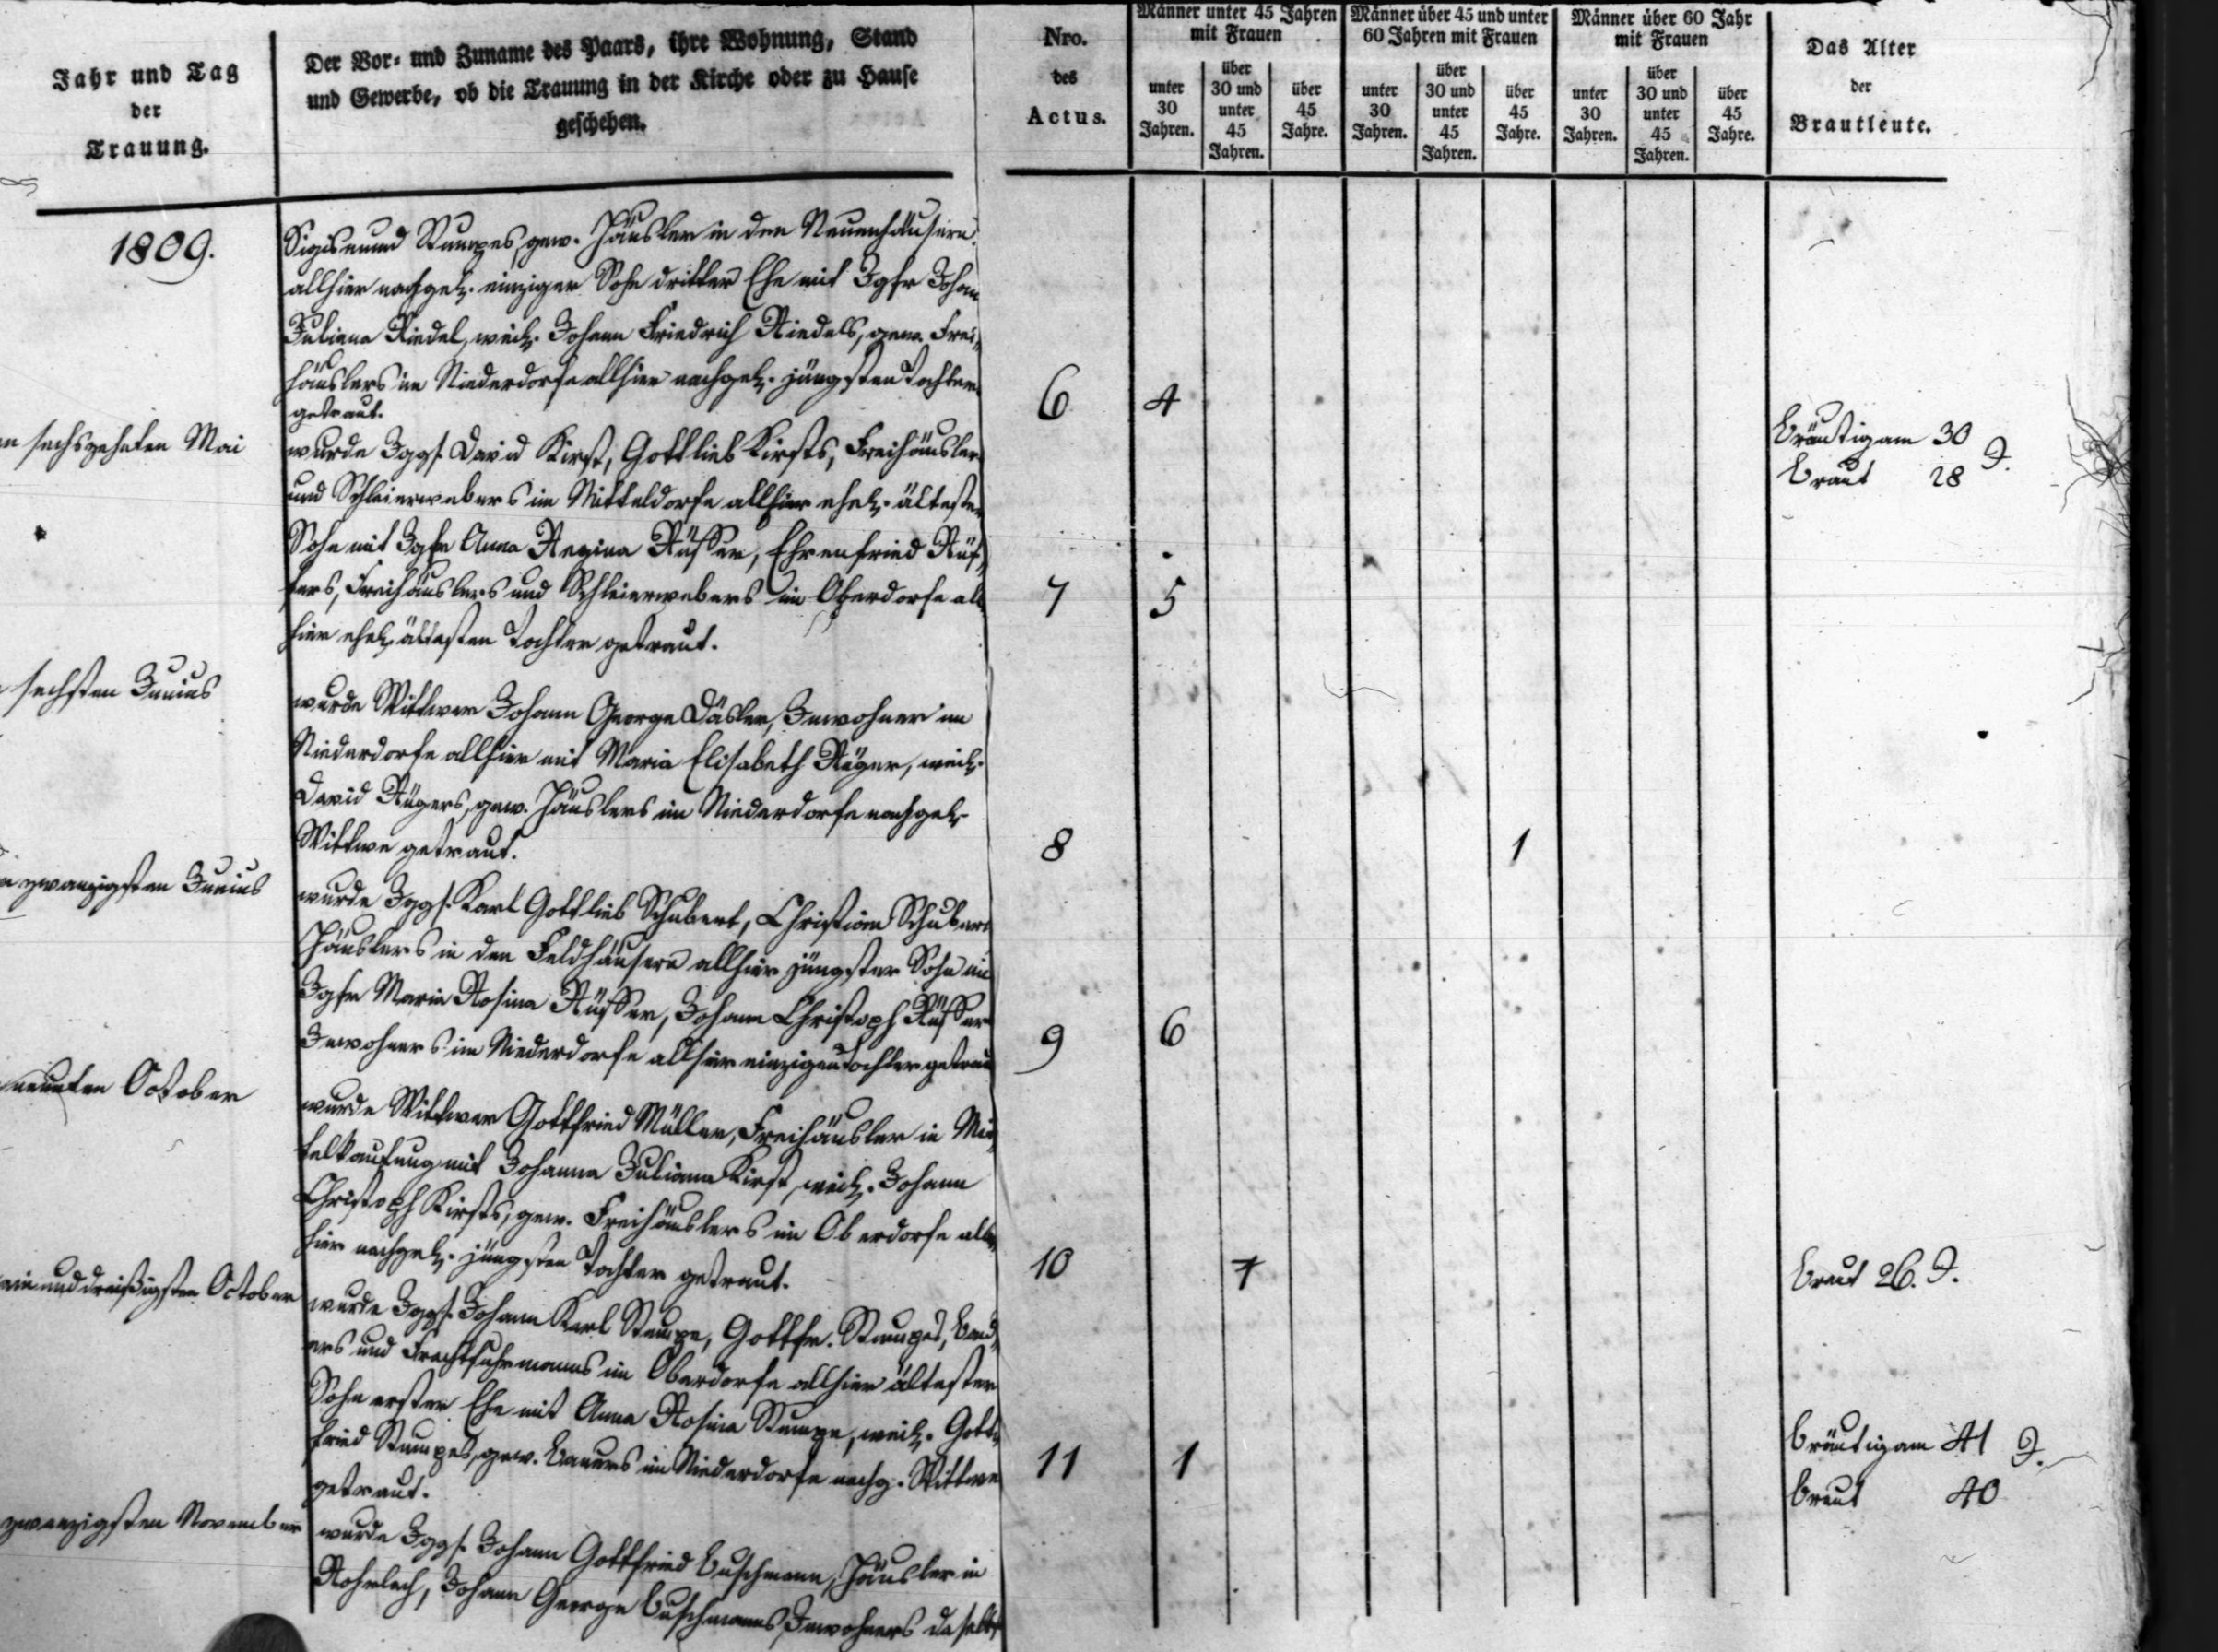 Jahr und Tag
der
Trauung.
Der Vor- und Zuname des Paars, ihre Wohnung, Stand
und Gewerbe, ob die Trauung in der Kirche oder zu Hause
geschehen.
Nro.
des
Actus.
Männer unter 45 Jahren
mit Frauen
unter
30
Jahren.
über
30 und
unter
45
Jahren.
über
45
Jahre.
Männer über 45 und unter
60 Jahren mit Frauen
unter
30
Jahren.
über
30 und
unter
45
Jahren.
über
45
Jahre.
Männer über 60 Jahr
mit Frauen
unter
30
Jahren.
über
30 und
unter
45
Jahren.
über
45
Jahre.
Das Alter
der
Brautleute.
1809.
Sigismund Stumpes, gew. Häusler in den Neuenhäusern
allhier nachgel. einziger Sohn dritter Ehe mit Jgfr Johan
Juliana Riedel, weil. Johann Friedrich Riedels, gew. Frei-
häuslers im Niederdorfe allhier nachgel. jüngsten Tochter
getraut.
6 4
sechszehnten Mai
wurde Jggs. David Kirst, Gottlieb Kirsts, Freihäusler
und Schleierwebers im Mitteldorfe allhier ehel. ältester
Sohn mit Jgfr Anna Regina Rüffer, Ehrenfried Rüf-
fers, Freihäuslers und Schleierwebers im Oberdorfe all-
hier ehel. ältesten Tochter getraut.
7 5
Bräutigam 30 J.
Braut 28
sechsten Junius
wurde Wittwer Johann George Däsler, Inwohner im
Niederdorfe allhier mit Maria Elisabeth Rüger, weil.
David Rügers, gew. Häuslers im Niederdorfe nachgel.
Wittwe getraut.
8 1
zwanzigsten Junius
wurde Jggs. Karl Gottlieb Schubert, Christian Schubert
Häuslers in den Feldhäusern allhier jüngster Sohn mi
Jgfr Maria Rosina Rüffer, Johann Christoph Rüffer
Inwohners im Niederdorfe allhier einzigen Tochter getrau
9 6
neunten October
wurde Wittwer Gottfried Müller, Freihäusler in Mit-
telkauffung mit Johanna Juliana Kirst, weil. Johann
Christoph Kirsts, gew. Freihäuslers im Oberdorfe all-
hier nachgel. jüngsten Tochter getraut.
10 7
Braut 26. J.
ein und dreißigsten October
wurde Jggs. Johann Karl Stumpe, Gottfr. Stumpes, Bau-
ers und Frachtfuhrmanns im Oberdorfe allhier ältester
Sohn erster Ehe mit Anna Rosina Stumpe, weil. Gott-
fried Stumpes, gew. Bauers im Niederdorfe nachg. Wittwe
getraut.
11 1
Bräutigam 41 J.
Braut 40
zwanzigsten November
wurde Jggs. Johann Gottfried Buschmann, Häusler in
Rohrlach, Johann George Buschmanns, Inwohners daselbst